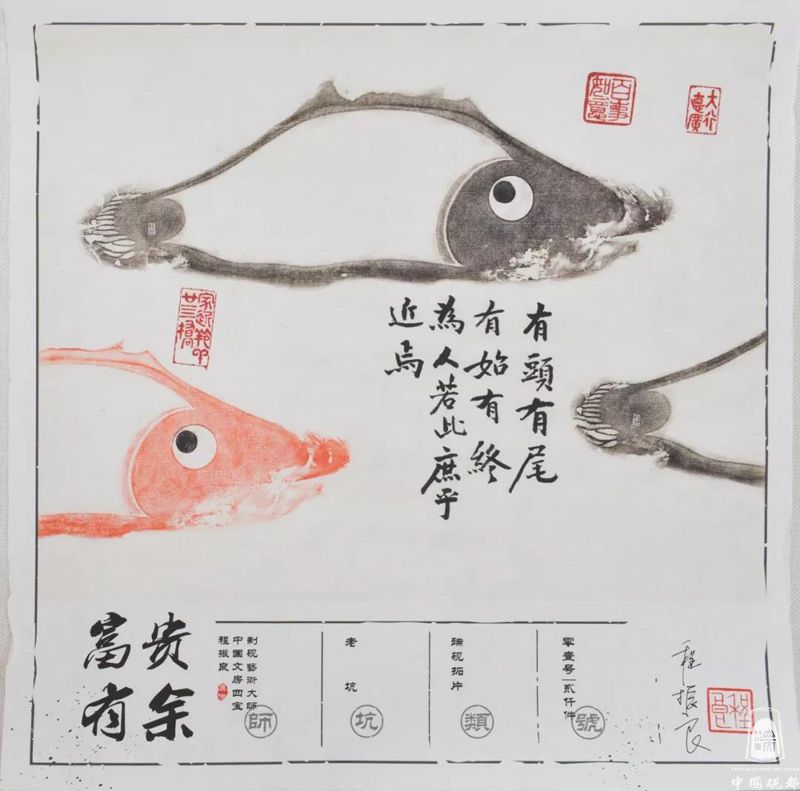 百事如意
有頭有尾
有始有終
為人若此庶乎
近焉
富贵
有余
制砚藝術大师
中国文房四宝
程振良
師
老坑
坑
端砚拓片
類
零壹号—贰仟件
號
程振良
中國硯都